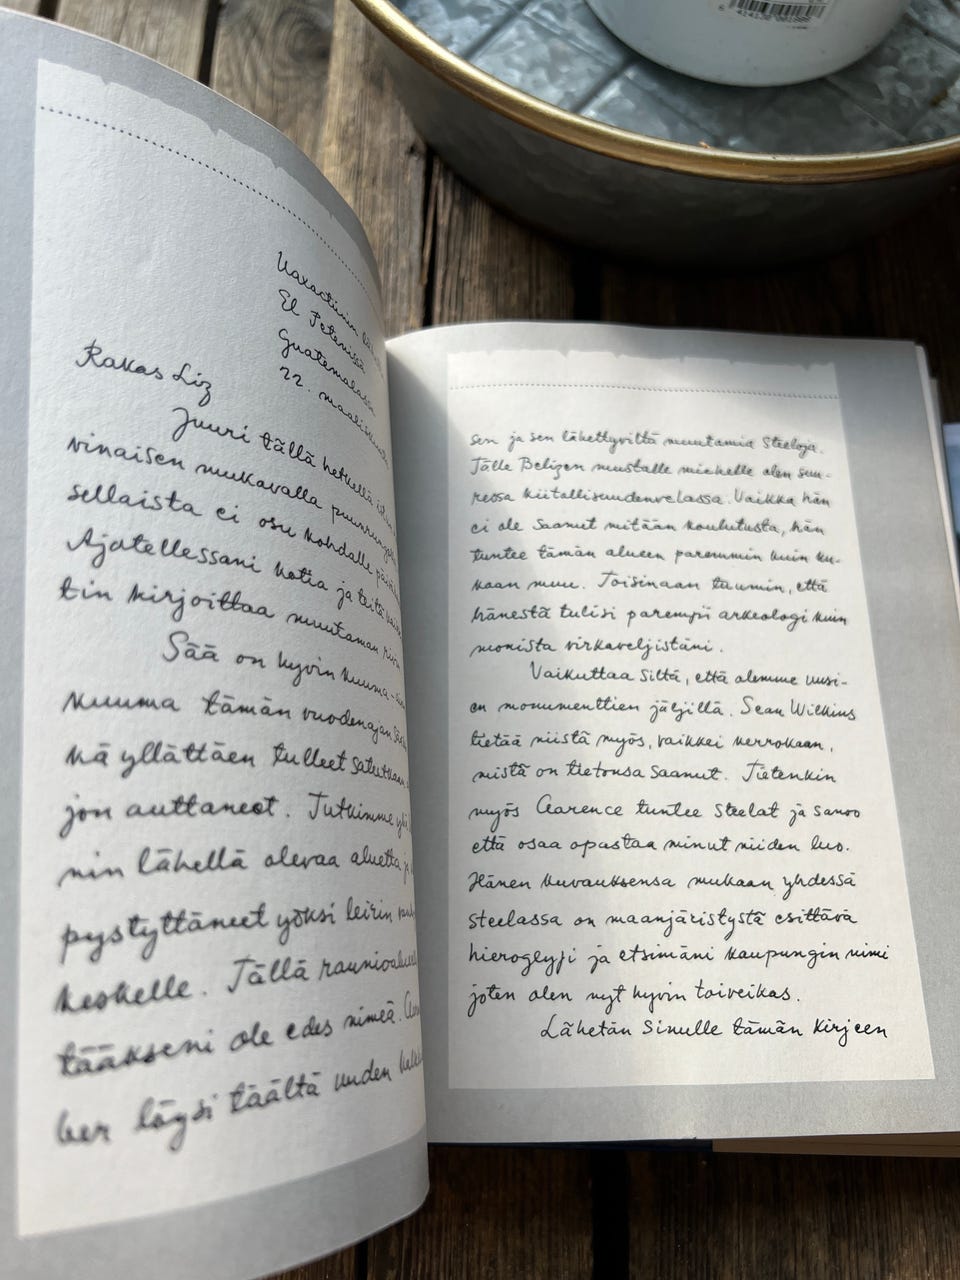 Uaxactunin
El Petenissä
Guatemalassa
22. maaliskuuta
Rakas Liz
Juuri tällä hetkellä istun
vinaisen mukavalla puunrungolla
sellaista ei osu kohdalle
Ajatellessani kotia ja teitä
tin kirjoittaa muutaman rivin
Sää on hyvin kuuma
kuuma tämän vuodenajan
kä yllättäen tulleet
jon auttaneet. Tutkimme
nin lähellä olevaa aluetta
pystyttäneet yöksi leirin
keskelle. Tällä raunioalueella
tääkseni ole edes nimeä.
ber löysi täältä uuden
sen ja sen lähettyviltä muutamia steeloja.
Tälle Belizen mustalle miehelle olen suu-
ressa kiitollisuudenvelassa. Vaikka hän
ei ole saanut mitään koulutusta, hän
tuntee tämän alueen paremmin kuin ku-
kaan muu. Toisinaan tuumin, että
hänestä tulisi parempi arkeologi kuin
monista virkaveljistäni.
Vaikuttaa siltä, että olemme uusi-
en monumenttien jäljillä. Sean Wilkins
tietää niistä myös, vaikkei kerrokaan,
mistä on tietonsa saanut. Tietenkin
myös Clarence tuntee steelat ja sanoo
että osaa opastaa minut niiden luo.
Hänen kuvauksensa mukaan yhdessä
steelassa on maanjäristystä esittävä
hieroglyfi ja etsimäni kaupungin nimi
joten olen nyt hyvin toiveikas.
Lähetän Sinulle tämän kirjeen